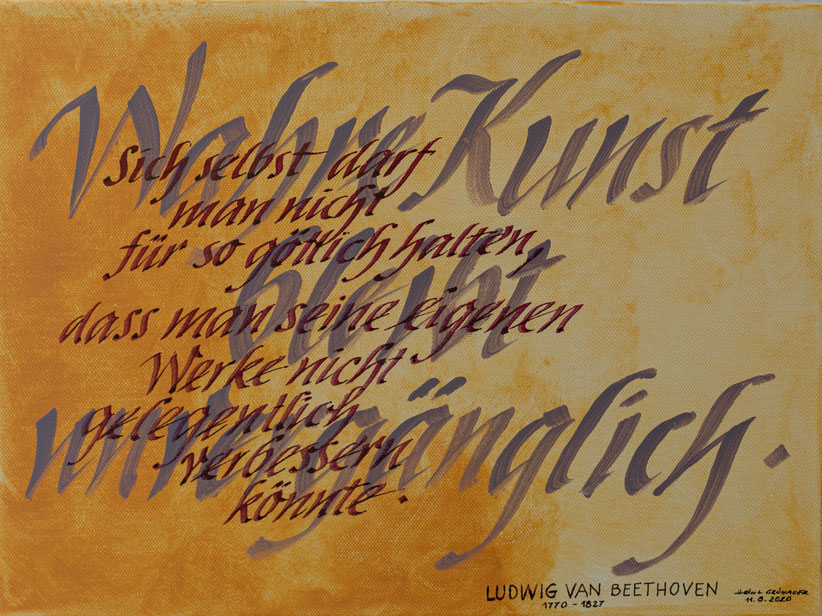 Wahre Kunst
bleibt
unvergänglich.
Sich selbst darf
man nicht
für so göttlich halten,
dass man seine eigenen
Werke nicht
gelegentlich
verbessern
könnte.
LUDWIG VAN BEETHOVEN
1770 - 1827